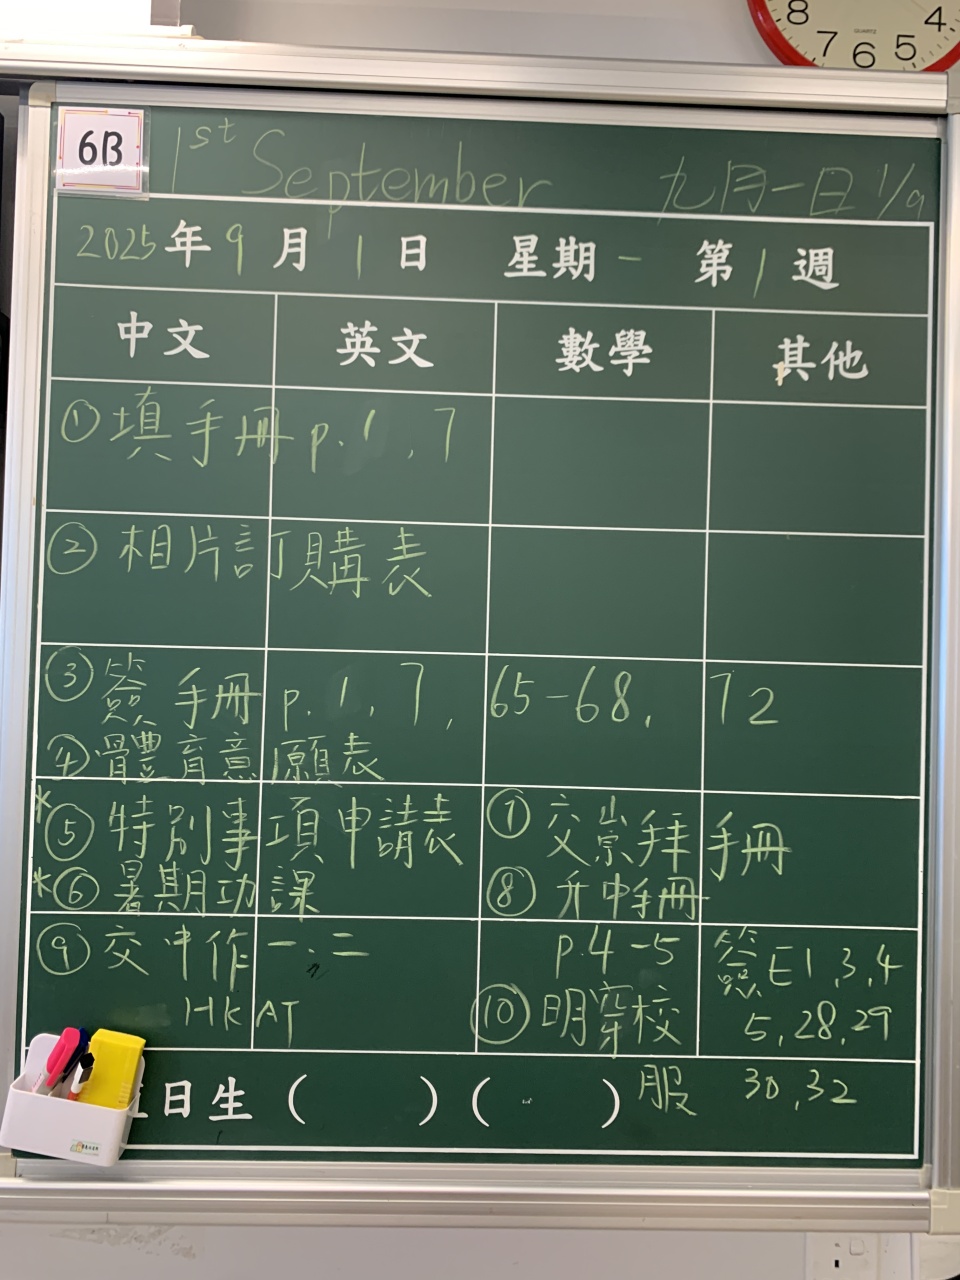 8 7 6 5 4
QUARTZ
6B
1st September 九月一日 1/9
2025年9月1日 星期一 第1週
中文 英文 數學 其他
①填手冊 p.1,7
②相片訂購表
③簽手冊 p.1,7, 65-68, 72
④體育意願表
*⑤特別事項申請表
*⑥暑期功課
⑦交崇拜手冊
⑧升中手冊
p.4-5
⑨交中作一、二
HKAT
⑩明穿校
服
簽E1,3,4
5,28,29
30,32
日生( )( )